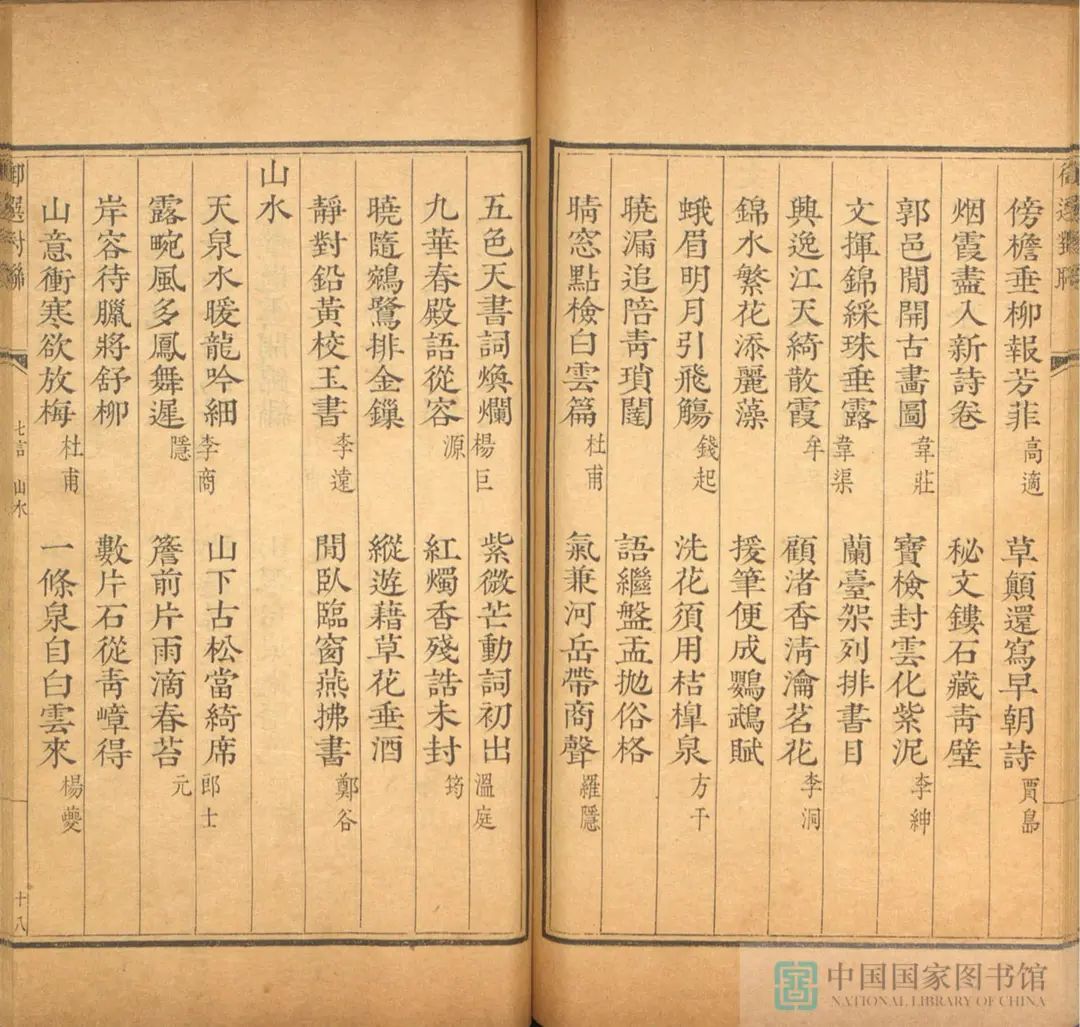 傍檐垂柳報芳菲 高適 草顛還寫早朝詩 賈島
烟霞盡入新詩卷 秘文鏤石藏青壁
郭邑閒開古畵圖 韋莊 寶檢封雲化紫泥 李紳
文揮錦綵珠垂露 韋渠 蘭臺架列排書目
興逸江天綺散霞 牟 顧渚香清瀹茗花 李洞
錦水繁花添麗藻 援筆便成鸚鵡賦
蛾眉明月引飛觴 錢起 洗花須用桔槹泉 方干
曉漏追陪青瑣闥 語繼盤盂抛俗格
晴窓點檢白雲篇 杜甫 氣兼河岳帶商聲 羅隱
五色天書詞煥爛 楊巨 紫微芒動詞初出 溫庭
九華春殿語從容 源 紅燭香殘誥未封 筠
曉隨鵷鷺排金鏁 縱遊藉草花垂酒
靜對鉛黃校玉書 李遠 閒臥臨窗燕拂書 鄭谷
山水
天泉水暖龍吟細 李商 山下古松當綺席 郎士
露畹風多鳳舞遲 隱 簷前片雨滴春苔 元
岸容待臘將舒柳 數片石從青嶂得
山意衝寒欲放梅 杜甫 一條泉自白雲來 楊夔
御選對聯
七言 山水
十八
中国国家图书馆
NATIONAL LIBRARY OF CHINA